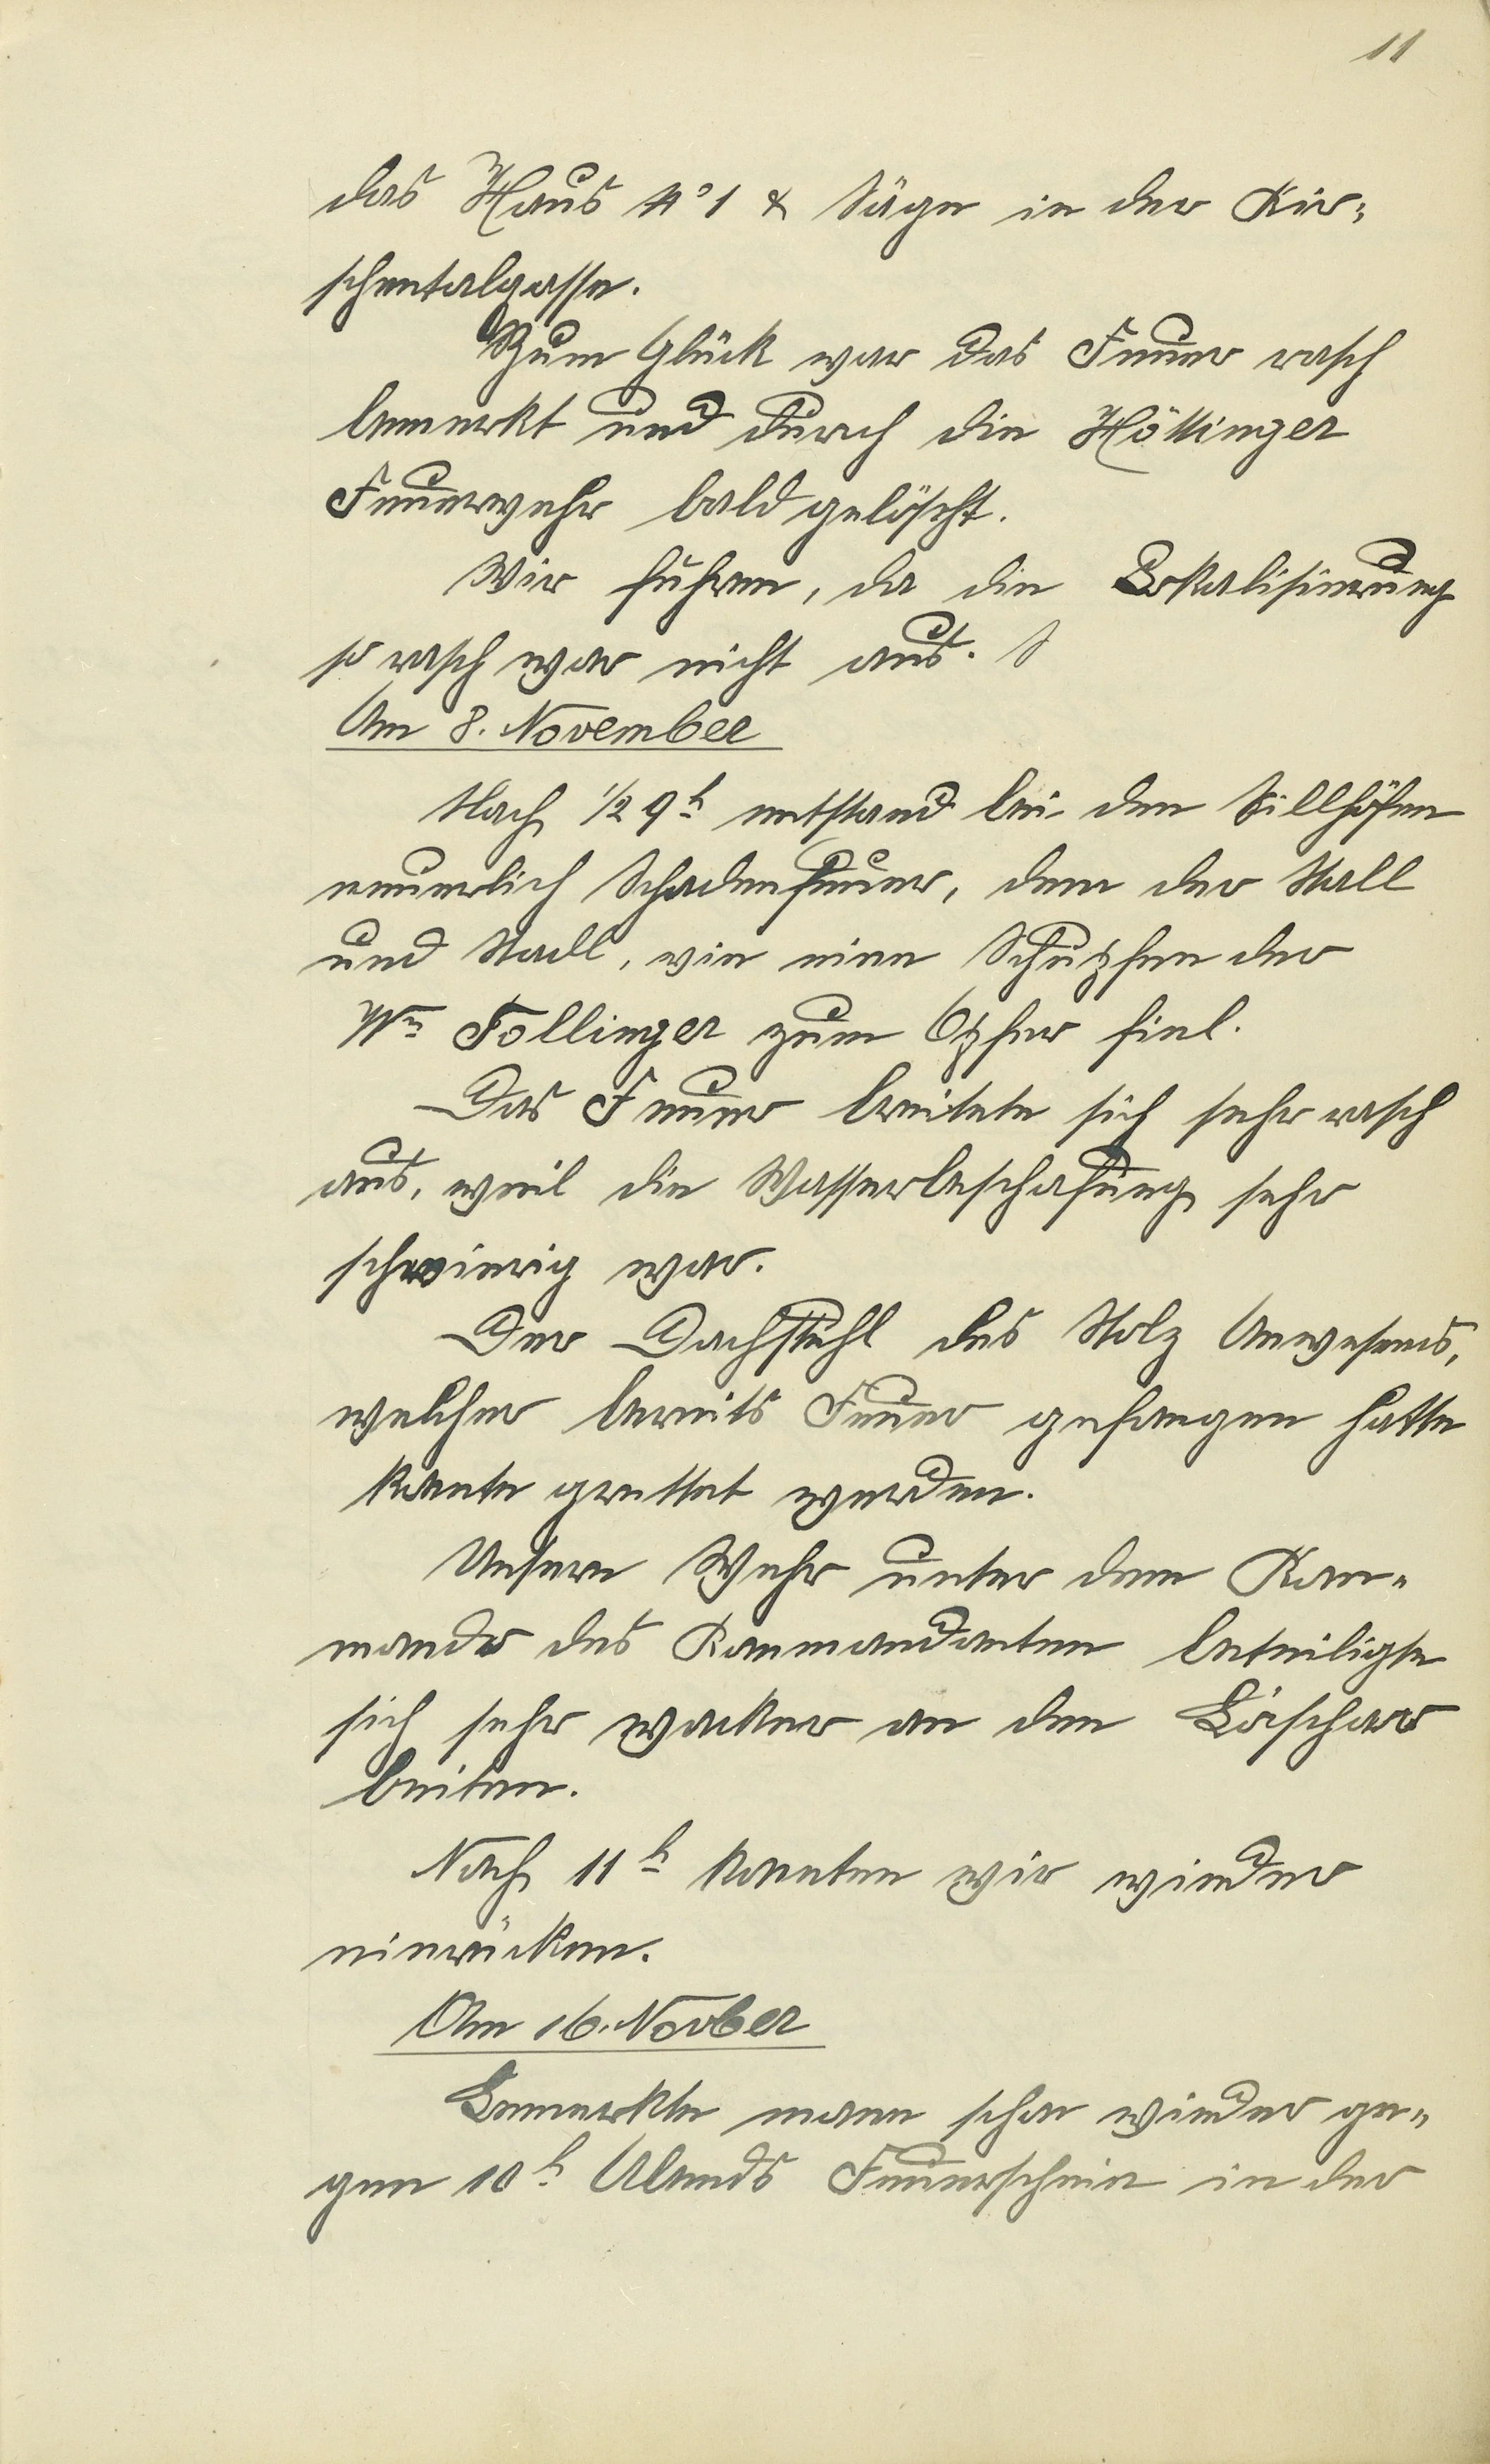 11
das Haus No 1 & Säge in der Kir-
schentalgasse.
Zum Glück war das Feuer rasch
bemerkt und durch die Höttinger
Feuerwehr bald gelöscht.
Wir fuhren, da die Lokalisierung
so rasch war nicht aus. S
Am 8. November
Nach ½ 9h entstand bei den Sillhöfen
neuerlich Schadenfeuer, dem der Stall
und Stadl, wie eine Schupfen der
We Follinger zum Opfer fiel.
Das Feuer breitete sich sehr rasch
aus, weil die Wasserbeschafung sehr
schwierig war.
Der Dachstuhl des Stolz Anwesens,
welcher bereits Feuer gefangen hatte
konte grettet werden.
Unsere Wehr unter dem Kom-
mando des Kommandanten beteiligte
sich sehr wacker an den Löschar
beiten.
Nach 11h konnten wir wieder
einrücken.
Am 16. Novber
Bemerkte mann schon wieder ge-
gen 10h Abends Feuerschein in der